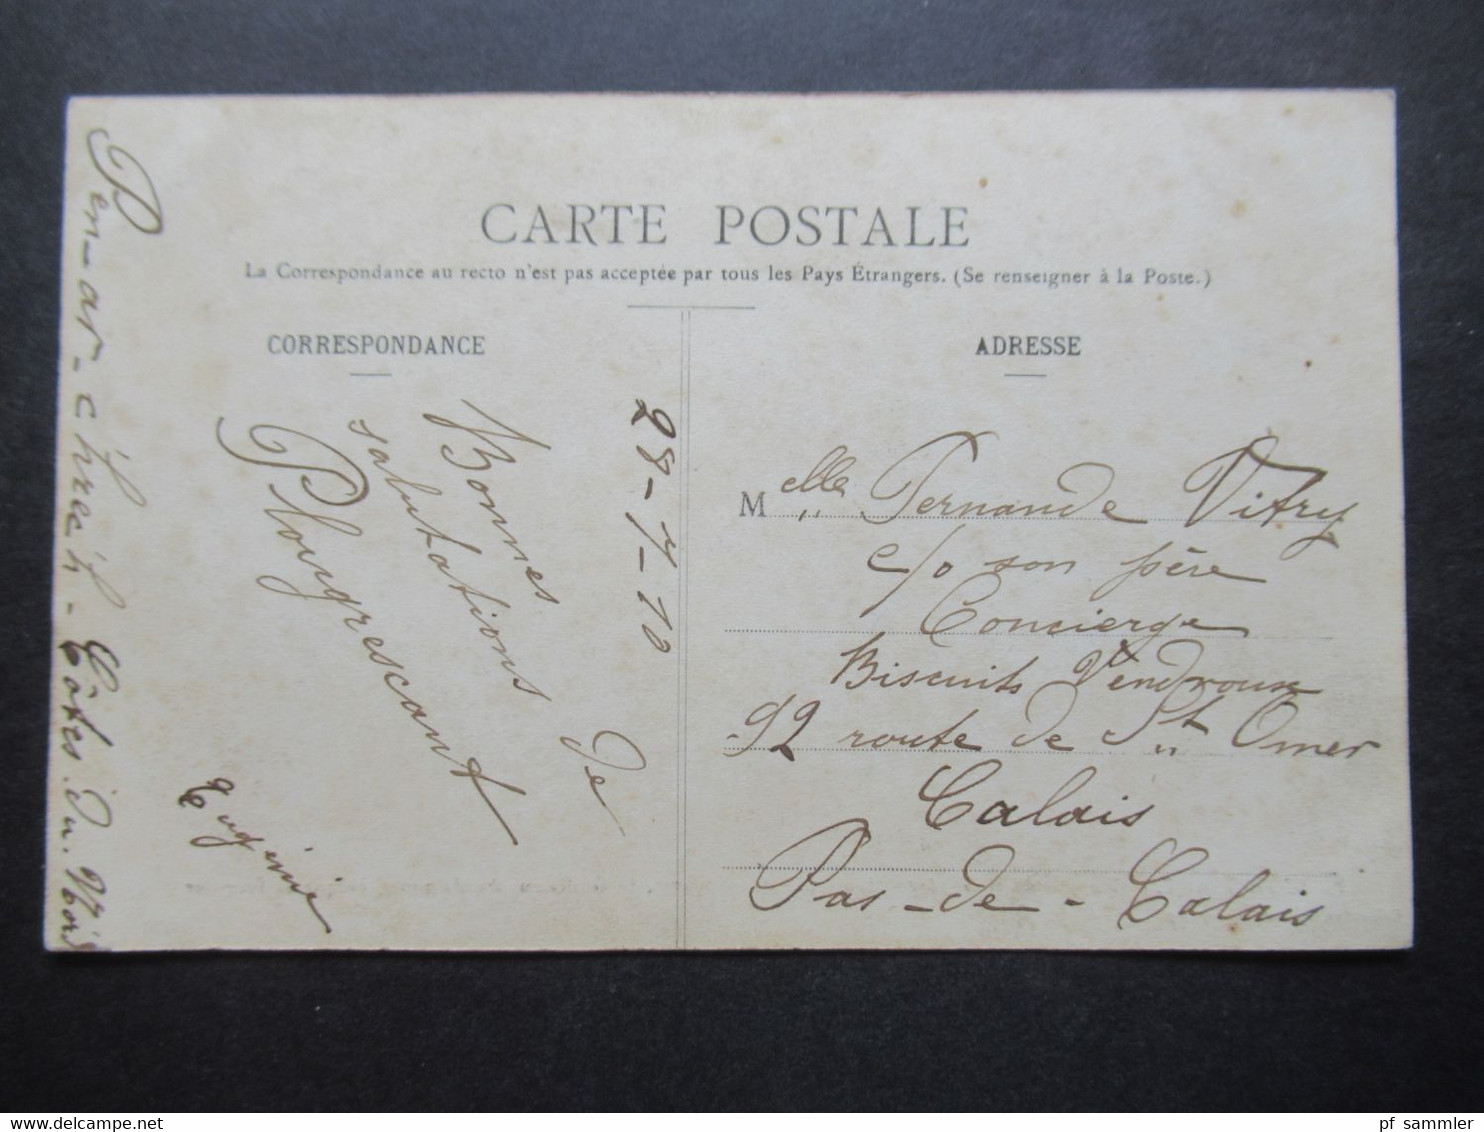 CARTE POSTALE
La Correspondance au recto n'est pas acceptée par tous les Pays Étrangers. (Se renseigner à la Poste.)
CORRESPONDANCE
28-7-10
Bonnes
salutations de
Plougrescant
Eugénie
Pen-ar-c'hrec'h - Côtes.du.Nord
ADRESSE
Melle Fernande Vitry
c/o son père
Concierge
Biscuits Vendroux
92 route de St Omer
Calais
Pas-de-Calais
www.delcampe.net
pf_sammler